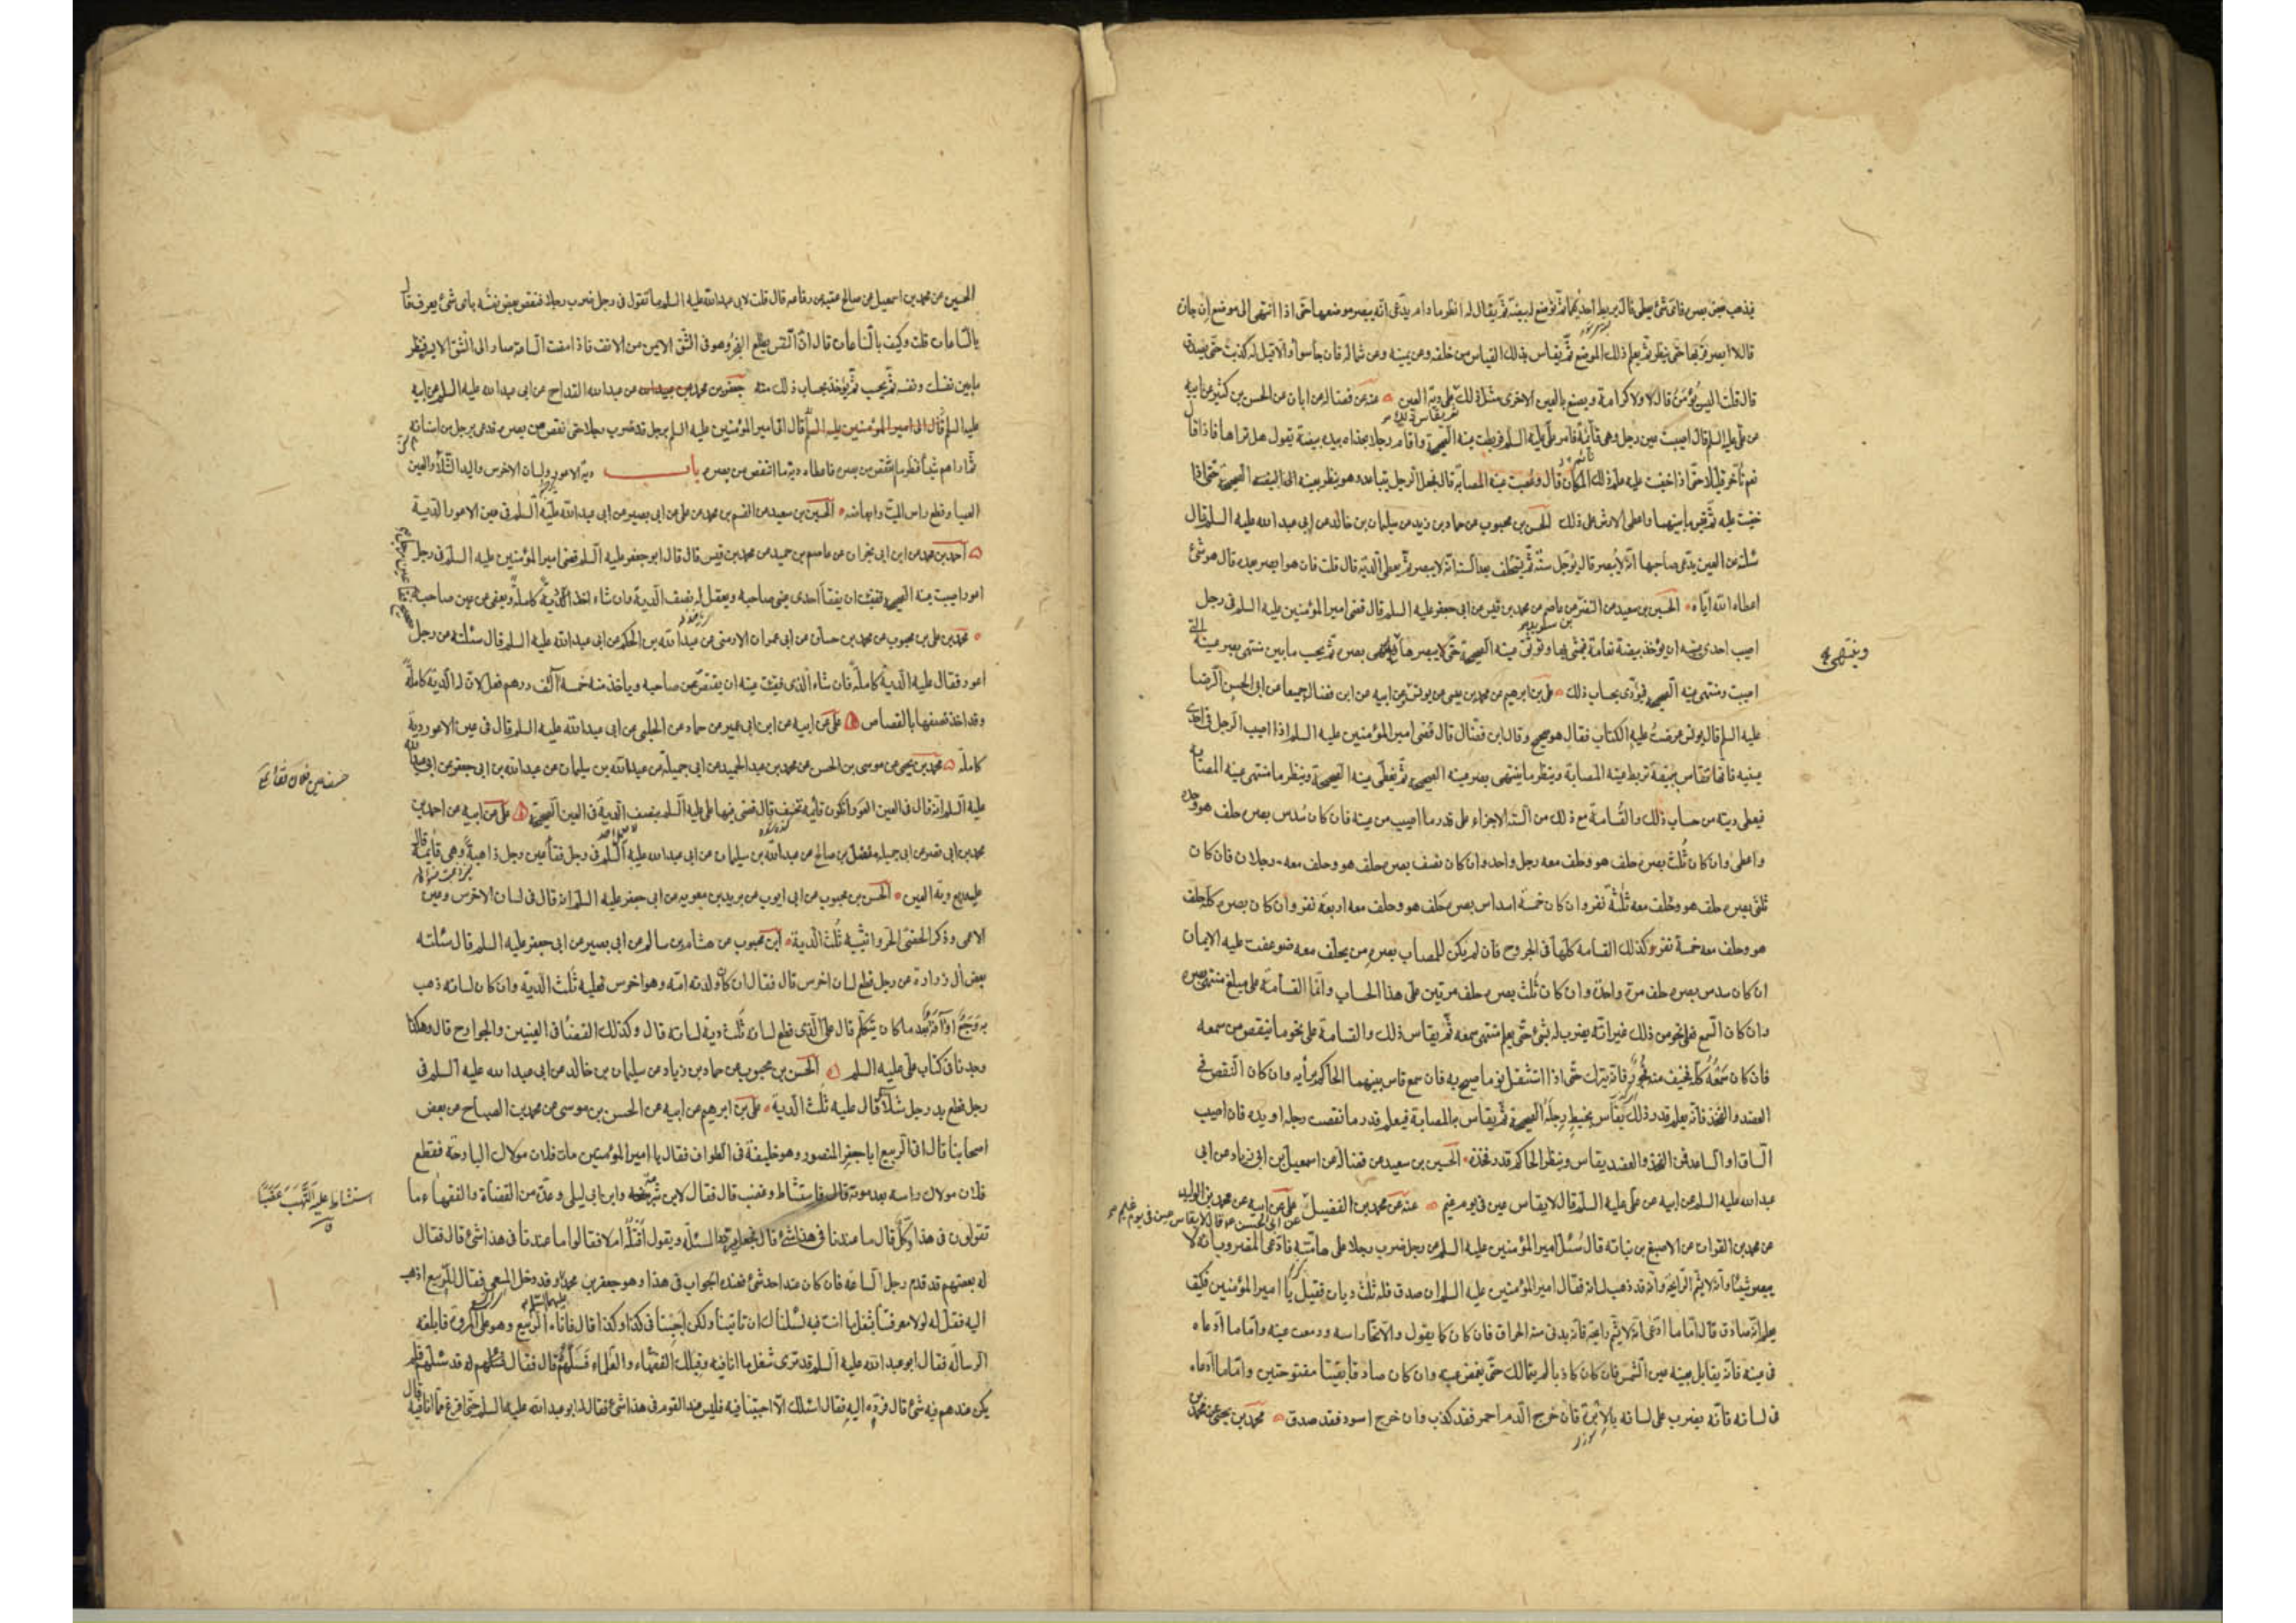 فيذهب بعض بصره فاى شئ يعطى قال يربط احديهما ثم يوضع له بيضة ثم يقال له انظر ما دام يدعى انه يبصر موضعها حتى اذا انتهى الى موضع ان جازه
قال لا ابصر قربها حتى ينظر ثم يعلم ذلك الموضع ثم يقاس بذلك القياس من خلفه وعن يمينه وعن شماله فان جاء سواء والا قيل له كذبت حتى يصدق
قال قلت اليس يؤمن قال لا ولا كرامة ويصنع بالعين الاخرى مثل ذلك ثم يقاس ذلك على دية العين عنه عن فضالة عن ابان عن الحسن بن كثير عن ابيه
عن على عليه السلم قال اصيبت عين رجل وهى قائمة فامر على عليه السلم فربطت عينه الصحيحة واقام رجلا بحذاه بيده بيضة يقول هل تراها فاذا قال
نعم تاخر قليلا حتى اذا خفيت عليه علم ذلك المكان قال وعصبت عينه المصابة قال فجعل الرجل يتباعد وهو ينظر بعينه الصحيحة حتى اذا
خفيت عليه ثم قيس ما بينهما واعطى الارش على ذلك الحسن بن محبوب عن حماد بن زيد عن سليمان بن خالد عن ابى عبد الله عليه السلم قال
سئلته عن العين يدعى صاحبها انه لا يبصر قال يؤجل سنة ثم يستحلف بعد السنة انه لا يبصر ثم يعطى الدية قال قلت فان هو ابصر بعده قال هو شئ
اعطاه الله اياه الحسين بن سعيد عن النضر عن عاصم عن محمد بن قيس عن ابى جعفر عليه السلم قال قضى امير المؤمنين عليه السلم فى رجل
اصيب احدى عينيه ان يؤخذ بيضة نعامة فيمشى بها وتوثق عينه الصحيحة حتى لا يبصرها وينتهى بصره ثم يحسب ما بين منتهى بصر عينه التى
اصيبت ومنتهى عينه الصحيحة فيؤدى بحساب ذلك على بن ابرهيم عن محمد بن عيسى عن يونس وعن ابيه عن ابن فضال جميعا عن ابى الحسن الرضا
عليه السلم قال يونس عرضت عليه الكتاب فقال هو صحيح وقال ابن فضال قال قضى امير المؤمنين عليه السلم اذا اصيب الرجل فى احدى
عينيه فانها تقاس ببيضة تربط عينه المصابة وينظر ما ينتهى بصر عينه الصحيحة ثم يغطى عينه الصحيحة وينظر ما ينتهى عينه المصابة
فيعطى ديته من حساب ذلك والقسامة مع ذلك من الستة الاجزاء على قدر ما اصيب من عينه فان كان سدس بصره حلف هو وحده
واعطى وان كان ثلث بصره حلف هو وحلف معه رجل واحد وان كان نصف بصره حلف هو وحلف معه رجلان فان كان
ثلثى بصره حلف هو وحلف معه ثلثة نفر وان كان خمسة اسداس بصره حلف هو وحلف معه اربعة نفر وان كان بصره كله حلف
هو وحلف معه خمسة نفر وكذلك القسامة كلها فى الجروح فان لم يكن للمصاب بصره من يحلف معه ضوعفت عليه الايمان
ان كان سدس بصره حلف مرة واحدة وان كان ثلث بصره حلف مرتين على هذا الحساب وانما القسامة على مبلغ منتهى بصره
وان كان السمع فعلى نحو من ذلك غير انه يضرب له بشئ حتى يعلم منتهى سمعه ثم يقاس ذلك والقسامة على نحو ما ينقص من سمعه
فان كان سمعه كله فخيف منه فجور فانه يترك حتى اذا استثقل نوما صيح به فان سمع قاس بينهما الحاكم برأيه وان كان النقص فى
العضد والفخذ فانه يعلم قدر ذلك يقاس بخيط رجله الصحيحة ثم يقاس به المصابة فيعلم قدر ما نقصت رجله او يده فان اصيب
الساق او الساعد فمن الفخذ والعضد يقاس وينظر الحاكم قدر فخذه الحسين بن سعيد عن فضالة عن اسمعيل بن ابى زياد عن ابى
عبد الله عليه السلم عن ابيه عن على عليه السلم قال لا يقاس عين فى يوم غيم عنه عن محمد بن الفضيل على عن ابيه عن محمد بن الوليد
عن ابى الحسن ع قال لا يقاس عين فى يوم غيم
عن محمد بن الفرات عن الاصبغ بن نباته قال سئل امير المؤمنين عليه السلم عن رجل ضرب رجلا على هامته فادعى المضروب انه لا
يبصر شيئا وانه لا يشم الرايحة وانه قد ذهب لسانه فقال امير المؤمنين عليه السلم ان صدق فله ثلث ديات فقيل يا امير المؤمنين فكيف
يعلم انه صادق قال اما ما ادعى انه لا يشم رايحة فانه يدنى منه الحراق فان كان كما يقول والا نحى راسه ودمعت عينه واما ما ادعاه
فى عينه فانه يقابل بعينه عين الشمس فان كان كاذبا لم يتمالك حتى يغمض عينه وان كان صادقا بقيتا مفتوحتين واما ما ادعاه
فى لسانه فانه يضرب على لسانه بالابرة فان خرج الدم احمر فقد كذب وان خرج اسود فقد صدق محمد بن يحيى عن محمد بن
وينتهى
الحسين عن محمد بن اسمعيل عن صالح بن عقبه عن رفاعه قال قلت لابى عبد الله عليه السلم ما تقول فى رجل ضرب رجلا فنقص بعض نفسه باى شئ يعرف قال
بالساعات قلت وكيف بالساعات قال ان النفس يطلع الفجر وهو فى الشق الايمن من الانف فاذا مضت الساعة صار الى الشق الايسر فينظر
ما بين نفسك ونفسه ثم يحسب ثم يؤخذ بحساب ذلك منه جعفر بن محمد عن عبد الله القداح عن ابى عبد الله عليه السلم عن ابيه
عليه السلم قال اتى امير المؤمنين عليه السلم برجل قد ضرب رجلا حتى نقص من بصره فدعى برجل من اسنانه
ثم اراهم شيئا فنظر ما انتقص من بصره فاعطاه دية ما انتقص من بصره باب دية الاعور ولسان الاخرس واليد الشلاء والعين
العمياء وقطع راس الميت وابعاضه الحسين بن سعيد عن القسم بن محمد عن على عن ابى بصير عن ابى عبد الله عليه السلم فى عين الاعور الدية
احمد بن محمد عن ابن ابى نجران عن عاصم بن حميد عن محمد بن قيس قال قال ابو جعفر عليه السلم قضى امير المؤمنين عليه السلم فى رجل
اعور اصيبت عينه الصحيحة ففقئت ان يفقأ احدى عينى صاحبه ويعقل له نصف الدية وان شاء اخذ الدية كاملة ويعفى عن عين صاحبه
محمد بن على بن محبوب عن محمد بن حسان عن ابى عمران الارمنى عن عبد الله بن الحكم عن ابى عبد الله عليه السلم قال سئلته عن رجل
اعور فقال عليه الدية كاملة فان شاء الذى فقئت عينه ان يقتص من صاحبه وياخذ منه خمسة آلف درهم فعل لان له الدية كاملة
وقد اخذ نصفها بالقصاص على عن ابيه عن ابن ابى عمير عن حماد عن الحلبى عن ابى عبد الله عليه السلم قال فى عين الاعور دية
كاملة محمد بن يحيى عن موسى بن الحسن عن محمد بن عبد الحميد عن ابى جميلة عن عبد الله بن سليمان عن عبد الله بن ابى جعفر عن ابى عبد الله
عليه السلم انه قال فى العين العوراء تكون قائمة تخسف قال قضى فيها على عليه السلم بنصف الدية فى العين الصحيحة على عن ابيه عن احمد بن
محمد بن ابى نصر عن ابى جميله مفضل بن صالح عن عبد الله بن سليمان عن ابى عبد الله عليه السلم فى رجل فقأ عين رجل ذاهبة وهى قائمة قال
عليه ربع دية العين الحسن بن محبوب عن ابى ايوب عن بريد بن معويه عن ابى جعفر عليه السلم انه قال فى لسان الاخرس وعين
الاعمى وذكر الخصى الحر وانثييه ثلث الدية ابن محبوب عن هشام بن سالم عن ابى بصير عن ابى جعفر عليه السلم قال سئلته
بعض آل زرارة عن رجل قطع لسان اخرس قال فقال ان كان ولدته امه وهو اخرس فعليه ثلث الدية وان كان لسانه ذهب
به وجع او آفة بعد ما كان يتكلم قال على الذى قطع لسانه ثلث دية لسانه قال وكذلك القضاء فى العينين والجوارح قال وهكذا
وجدنا فى كتاب على عليه السلم الحسن بن محبوب عن حماد بن زياد عن سليمان بن خالد عن ابى عبد الله عليه السلم فى
رجل قطع يد رجل شلاء قال عليه ثلث الدية على بن ابرهيم عن ابيه عن الحسن بن موسى عن محمد بن الصباح عن بعض
اصحابنا قال اتى الربيع ابا جعفر المنصور وهو خليفة فى الطواف فقال يا امير المؤمنين مات فلان مولاك البارحة فقطع
فلان مولاك راسه بعد موته قال فاستشاط وغضب قال فقال لابن شبرمة وابن ابى ليلى وعدة من القضاة والفقهاء ما
تقولون فى هذا وكل قال ما عندنا فى هذا شئ قال فجعل يردد المسئلة ويقول اقتله ام لا فقالوا ما عندنا فى هذا شئ قال فقال
له بعضهم قد قدم رجل الساعة فان كان عند احد شئ فعنده الجواب فى هذا وهو جعفر بن محمد وقد دخل المسعى فقال للربيع اذهب
اليه فقل له لولا معرفتنا بشغل ما انت فيه لسئلناك ان تاتينا ولكن اجبنا فى كذا وكذا قال فاتاه الربيع وهو على المروة فابلغه
الرسالة فقال ابو عبد الله عليه السلم قد ترى شغل ما انا فيه وقبلك الفقهاء والعلماء فسلهم قال فقال له قد سئلهم فلم
يكن عندهم فيه شئ قال فرده اليه فقال اسئلك الا اجبتنا فيه فليس عند القوم فى هذا شئ فقال له ابو عبد الله عليه السلم حتى افرغ مما انا فيه قال
استشاط عليه التهب غضبا